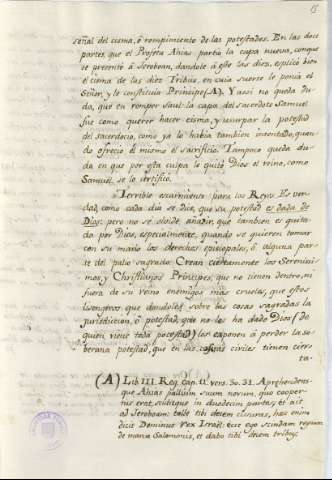 15
señal del cisma, ó rompimiento de las potestades. En las doce
partes, que el Profeta Ahias partió la capa nueva, conque
se presentó a Jeroboan, dandole á este las diez, esplicó bien
el cisma de las diez Tribus, en cuia suerte le ponia el
Señor, y le constituía Principe (A). Y assi no queda du-
da, que en romper Saul la capa del sacerdote Samuel
fue como querer hacer cisma, y usurpar la potestad
del sacerdocio, como ya lo habia tambien intentado, quan-
do ofreció él mismo el sacrificio. Tampoco queda du-
da en que por esta culpa le quitó Dios el reino, como
Samuel se lo certificó.
Terrible escarmiento para los Reyes. Es ver-
dad, como cada dia se dice, que su potestad es dada de
Dios; pero no se olvide añadir, que tambien es quita-
da por Dios, especialmente, quando se quieren tomar
con su mano los derechos episcopales, ó alguna par-
te del palio sagrado. Crean ciertamente los Serenisi-
mos, y Christianos Principes, que no tienen dentro, ni
fuera de su reino enemigos mas crueles, que estos
lisongeros que dandoles sobre las cosas sagradas la
jurisdiccion, ó potestad, que no les ha dado Dios (de
quien viene toda potestad) los exponen á perder la so-
berana potestad, que en las cosas civiles tienen cier-
ta.
(A) Lib III. Reg. cap. 11. vers. 30. 31. Aprehendens-
que Ahias pallium suum novum, quo cooper-
tus erat, scidit in duodecim partes; et ait
ad Jeroboam: tolle tibi decem scissuras, haec enim
dicit Dominus Deus Israël: ecce ego scindam regnum
de manu Salomonis, et dabo tibi decem tribus;